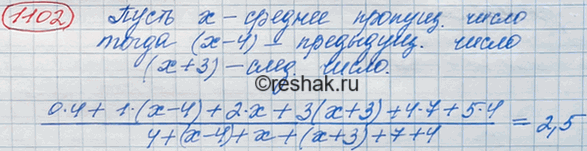 1102
Пусть x – среднее пропущ. число
тогда (x-4) – предыдущ. число
(x+3) – след. число.
©reshak.ru
0·4+1·(x-4)+2·x+3(x+3)+4·7+5·4
4+(x-4)+x+(x+3)+7+4 = 2,5